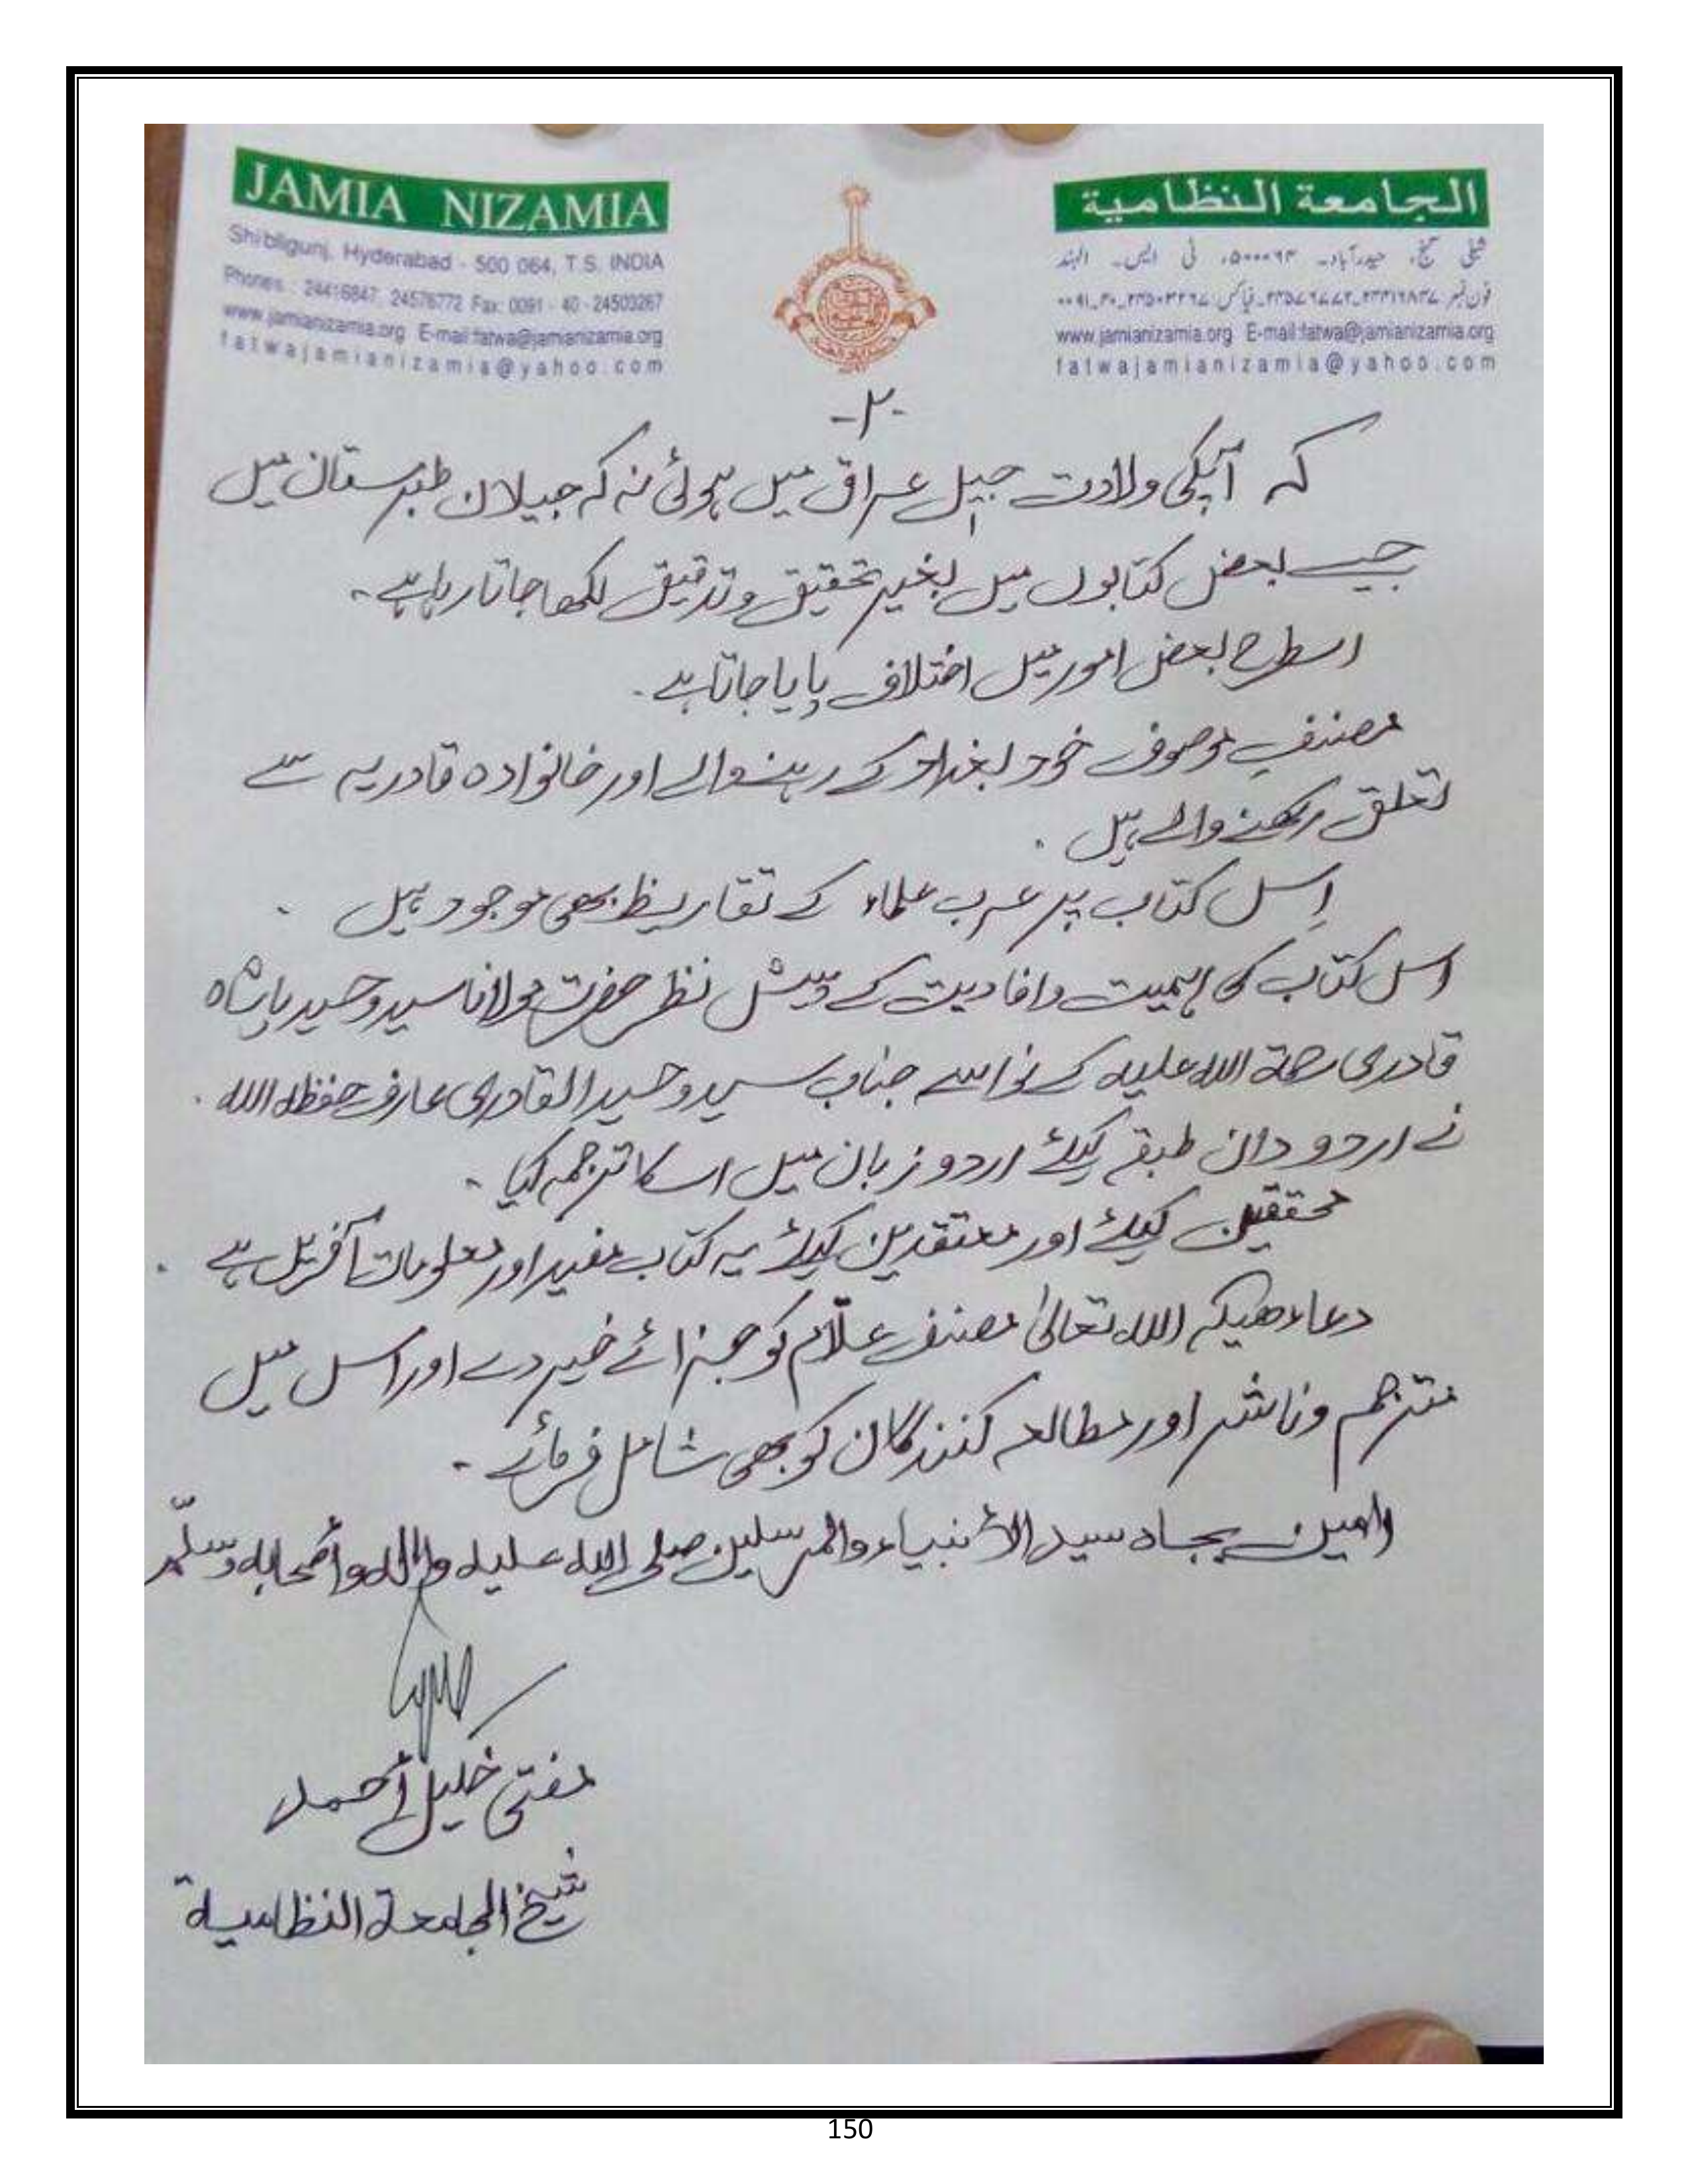 JAMIA NIZAMIA
Shibligunj, Hyderabad - 500 064, T.S. INDIA
Phones : 24416847, 24576772 Fax: 0091 - 40 - 24503267
www.jamianizamia.org E-mail:fatwa@jamianizamia.org
fatwajamianizamia@yahoo.com
الجامعة النظامية
شبلی گنج، حیدرآباد۔ ۵۰۰۰۶۴، ٹی ایس۔ الہند
فون نمبر ۲۴۴۱۶۸۴۷۔۲۴۵۷۶۷۷۲ فیاکس: ۲۴۵۰۳۲۶۷۔۴۰۔۰۰۹۱
www.jamianizamia.org E-mail:fatwa@jamianizamia.org
fatwajamianizamia@yahoo.com
-۲-
کہ آپکی ولادت جیل عراق میں ہوئی نہ کہ جیلان طبرستان میں
جیسے بعض کتابوں میں بغیر تحقیق و تدقیق لکھا جاتا رہا ہے۔
اسطرح بعض امور میں اختلاف پایا جاتا ہے۔
مصنفِ موصوف خود بغداد کے رہنے والے اور خانوادہ قادریہ سے
تعلق رکھنے والے ہیں۔
اِس کتاب پر عرب علماء کے تقاریظ بھی موجود ہیں۔
اس کتاب کی اہمیت و افادیت کے پیش نظر حضرت مولانا سید وحید پاشاہ
قادری رحمۃ اللہ علیہ کے نواسے جناب سید وحید القادری عارف حفظہ اللہ۔
نے اردو دان طبقے کیلئے اردو زبان میں اسکا ترجمہ کیا۔
محققین کیلئے اور معتقدین کیلئے یہ کتاب مفید اور معلومات آفریں ہے۔
دعاء ھیکہ اللہ تعالیٰ مصنف علّام کو جزائے خیر دے اور اس میں
مترجم و ناشر اور مطالعہ کنندگان کو بھی شامل فرمائے۔
اٰمین بجاہ سید الأنبیاء والمرسلین صلی اللہ علیہ واٰلہ وأصحابہ وسلّم
مفتی خلیل أحمد
شیخ الجامعۃ النظامیۃ
150